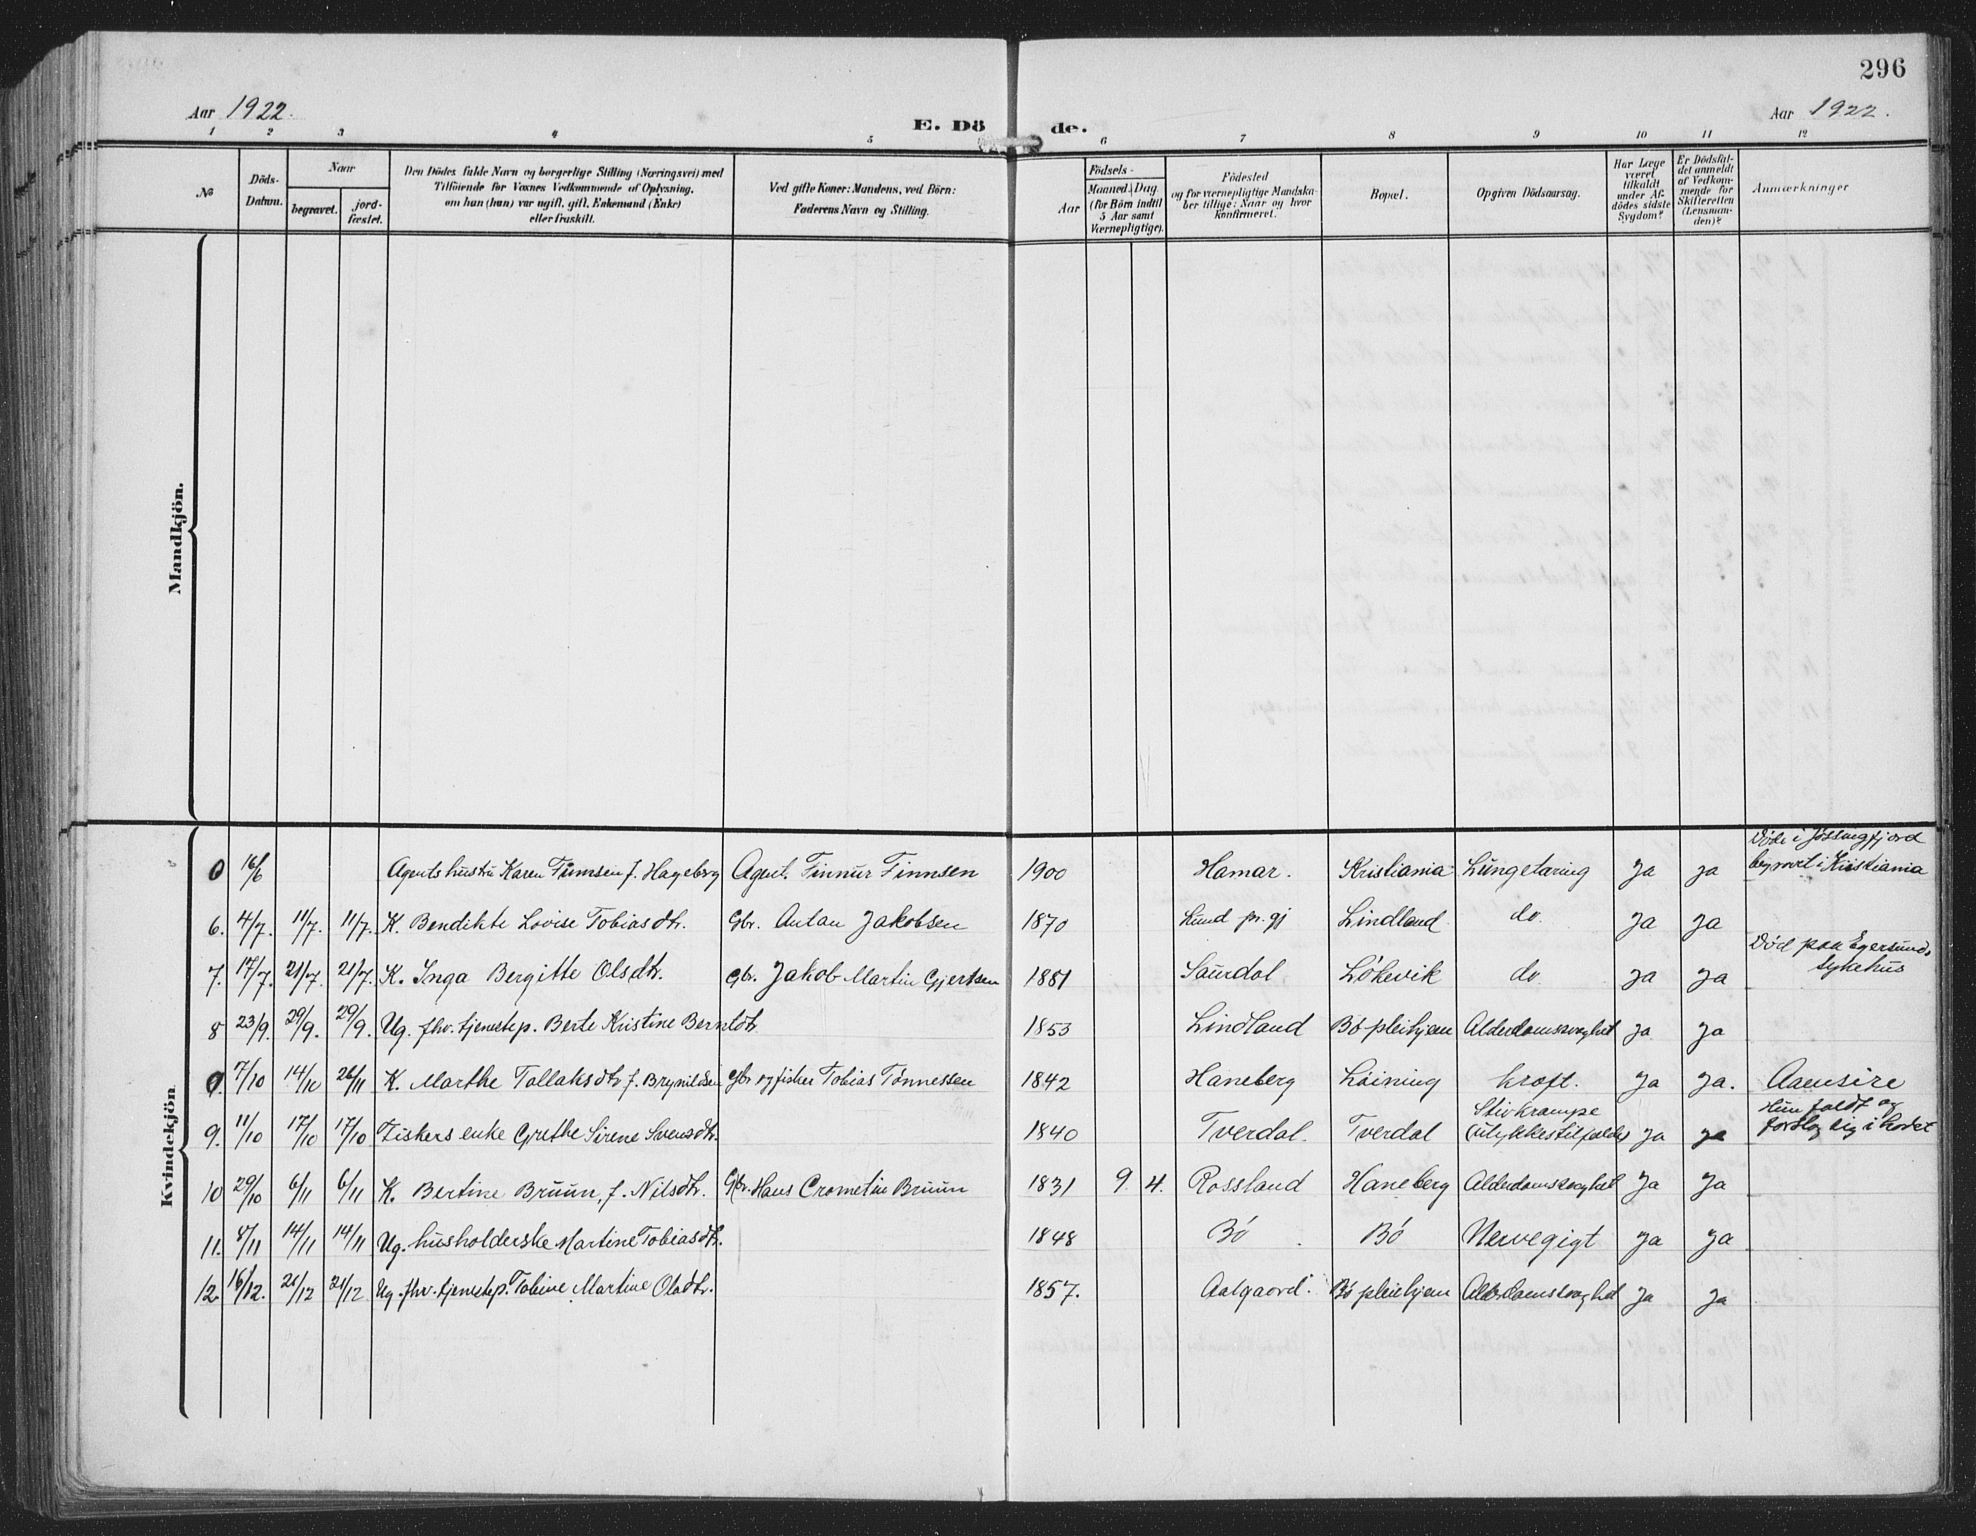 296
Aar 1922. E. Dö de. Aar 1922.
1 2 3 4 5 6 7 8 9 10 11 12
No
Döds-Datum.
Naar
begravet.
jord-fæstet.
Den Dödes fulde Navn og borgerlige Stilling (Næringsvei) med
Tilföiende for Voxnes Vedkommende af Oplysning,
om han (hun) var ugift, gift, Enkemand (Enke)
eller fraskilt.
Ved gifte Koner: Mandens, ved Börn:
Faderens Navn og Stilling.
Födsels-
Aar
Maaned. Dag.
(for Börn indtil
5 Aar samt
Værnepligtige).
Födested
og for værnepligtige Mandska-
ber tillige: Naar og hvor
Konfirmeret.
Bopæl.
Opgiven Dödsaarsag.
Har Læge
været
tilkaldt
under Af-
dödes sidste
Sygdom?
Er Dödsfal-
det anmeldt
af Vedkom-
mende for
Skifteretten
(Lensman-
den)?
Anmærkninger
Mandkjön.
Kvindekjön
0 16/6 Agents hustru Karen Finnsen f. Hageberg Agent. Finnur Finnsen 1900 Hamar. Kristiania Lungetæring Ja ja Døde i Jøssingfjord begravet i Kristiania
6. 4/7. 11/7. 11/7. K. Bendikte Lovise Tobiasdtr. Gbr. Antan Jakobsen 1870 Lund pr. gj Lindland do. Ja Ja
7. 17/7. 21/7. 21/7. K. Inga Bergitte Olsdtr. Gbr. Jakob Martin Gjertsen 1881 Saurdal Løkevik do. Ja Ja Død paa Egersunds sykehus
8 23/9. 29/9. 29/9. Ug. fhv. tjenestep. Berte Kristine Berntdtr 1853 Lindland Bø pleihjem Alderdomssvaghet Ja Ja
0. 7/10 14/10 26/11 K. Marthe Tollaksdtr f. Brynildsen gbr og fisker Tobias Tønnessen 1842 Haneberg Løining kræft. Ja Ja. Aaensire
9. 11/10 17/10 17/10 Fiskers enke Grethe Sirene Svensdtr. 1840 Tverdal. Tverdal Stivkrampe (ulykkestilfælde) Ja ja Hun faldt og forslog sig i hodet
10 29/10 6/11 6/11 K. Bertine Bruun, f. Nilsdtr. Gbr. Hans Crometius Bruun 1831 9 4. Rossland Haneberg Alderdomssvaghet Ja Ja
11. 8/11 14/11 14/11 Ug. husholderske Martine Tobiasdtr. 1848 Bø Bø Nervegigt Ja Ja
12 16/12. 21/12 21/12 Ug. fhv. tjenestep. Tobine Martine Olsdtr. 1857. Aalgaard. Bø pleiehjem Alderdomssvaghet Ja Ja